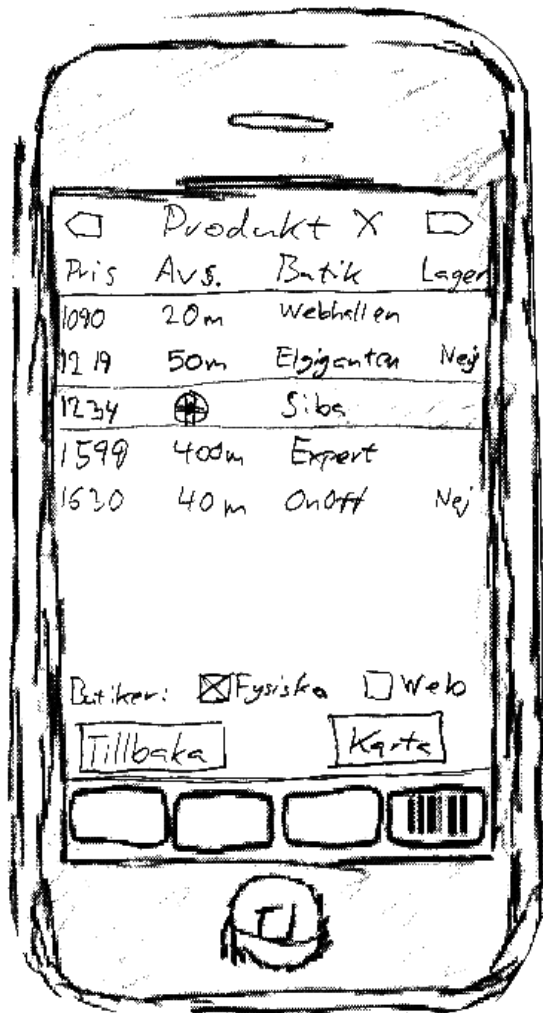 Produkt X
Pris Avs. Butik Lager
1090 20m Webhallen
1219 50m Elgiganten Nej
1234 Siba
1599 400m Expert
1630 40m OnOff Nej
Butiker: Fysiska Web
Tillbaka Karta